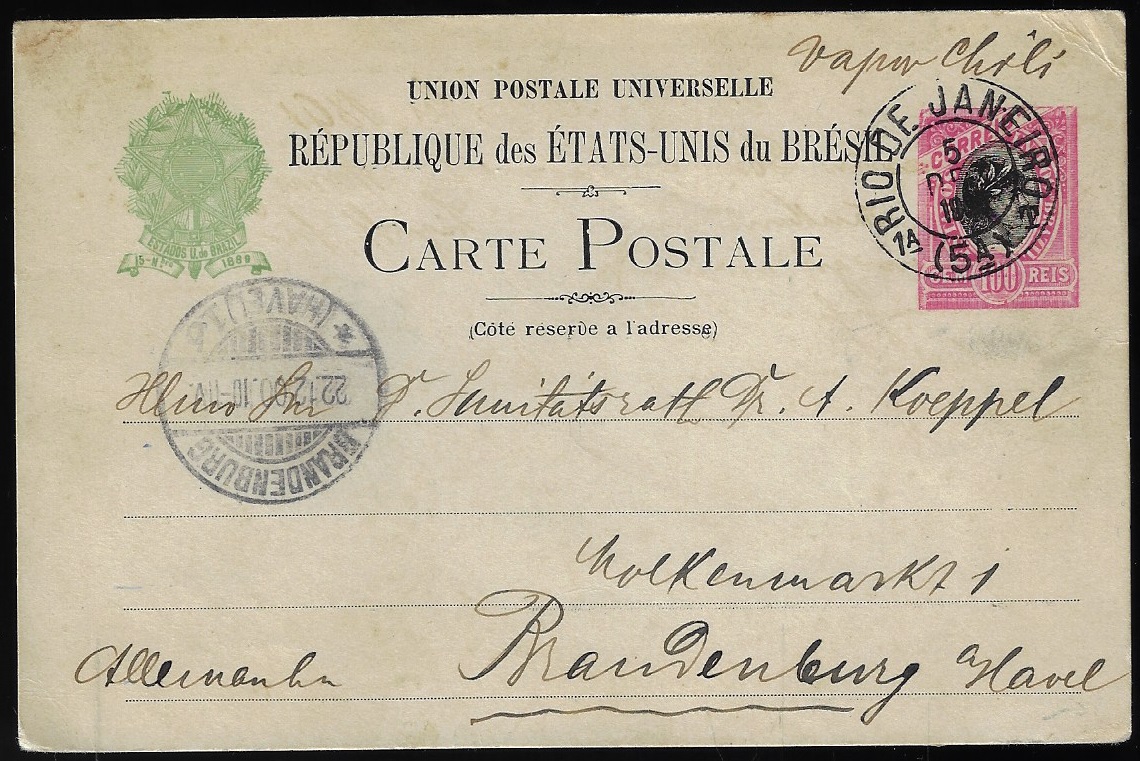 Vapor Chili
UNION POSTALE UNIVERSELLE
RÉPUBLIQUE des ÉTATS-UNIS du BRÉSIL
CARTE POSTALE
(Côté reserve a l'adresse)
ESTADOS U. do BRAZIL
15-Nbro 1889
RIO DE JANEIRO
5
1A (5A) 2T
CORREIO
100 REIS
* (HAVEL) 1 b
22.12.00.10-11V.
BRANDENBURG
Herrn D. Sanitätsrath Dr. A. Koeppel
Molkenmarkt 1
Brandenburg a/Havel
Allemanha